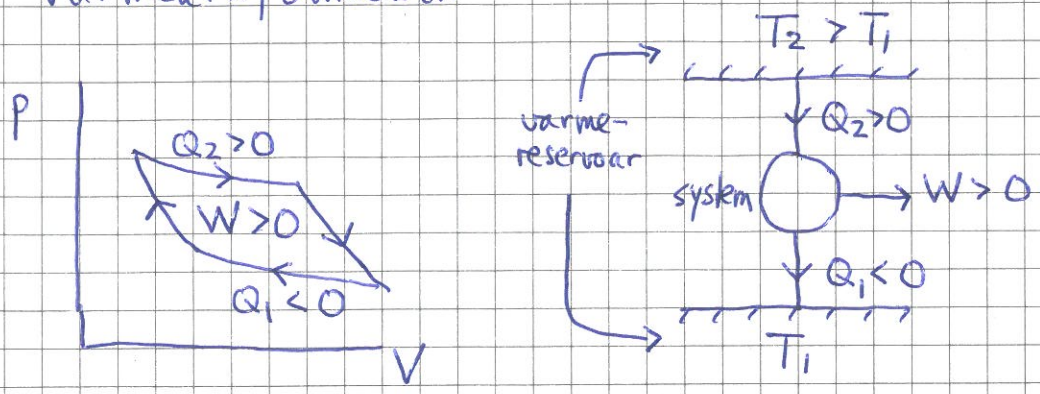 T₂ > T₁
P
Q₂>0
W>0
Q₁<0
V
varme-
reservoar
Q₂>0
system
W>0
Q₁<0
T₁